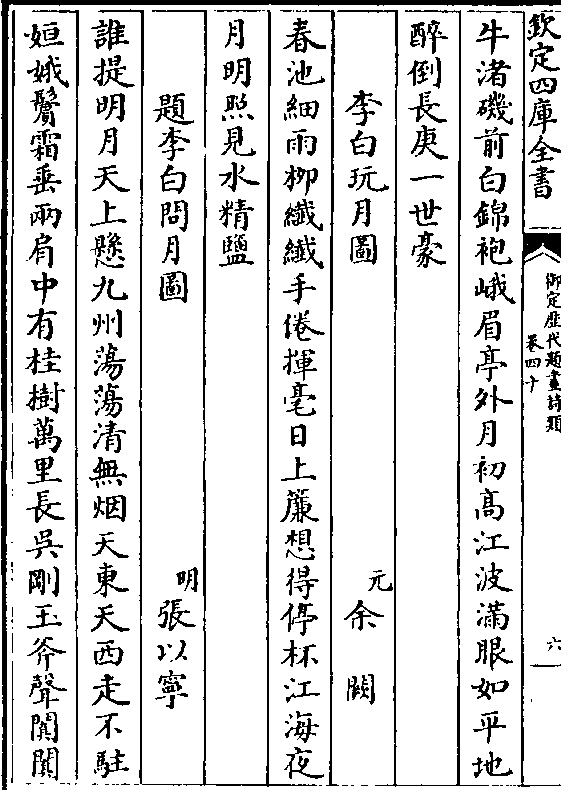 欽定四庫全書
御定歴代題畫詩類
卷四十
六
牛渚磯前白錦袍峨眉亭外月初髙江波滿眼如平地
醉倒長庚一世豪
李白玩月圖
元余闕
春池細雨柳纎纎手倦揮毫日上簾想得停杯江海夜
月明照見水精鹽
題李白問月圖
明張以寧
誰提明月天上懸九州蕩蕩清無烟天東天西走不駐
姮娥鬢霜垂兩肩中有桂樹萬里長吳剛玉斧聲闐闐